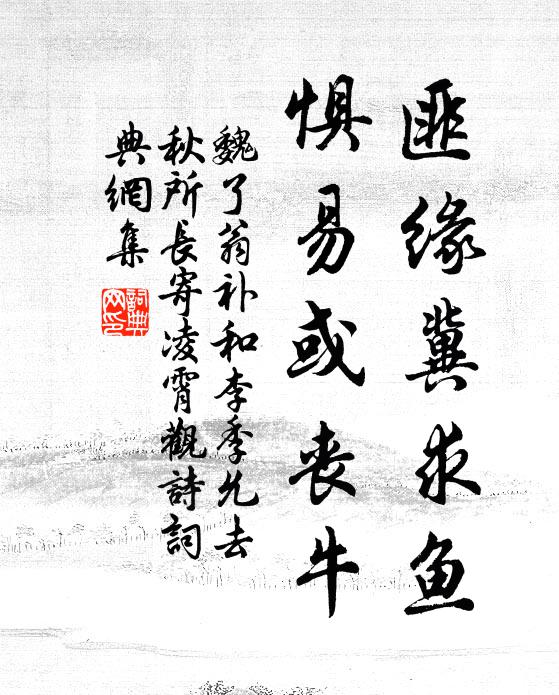 匪缘冀求鱼
惧易或丧牛
魏了翁补和李季允去
秋所長寄凌霄觀詩詞
典網集
詞典
网印